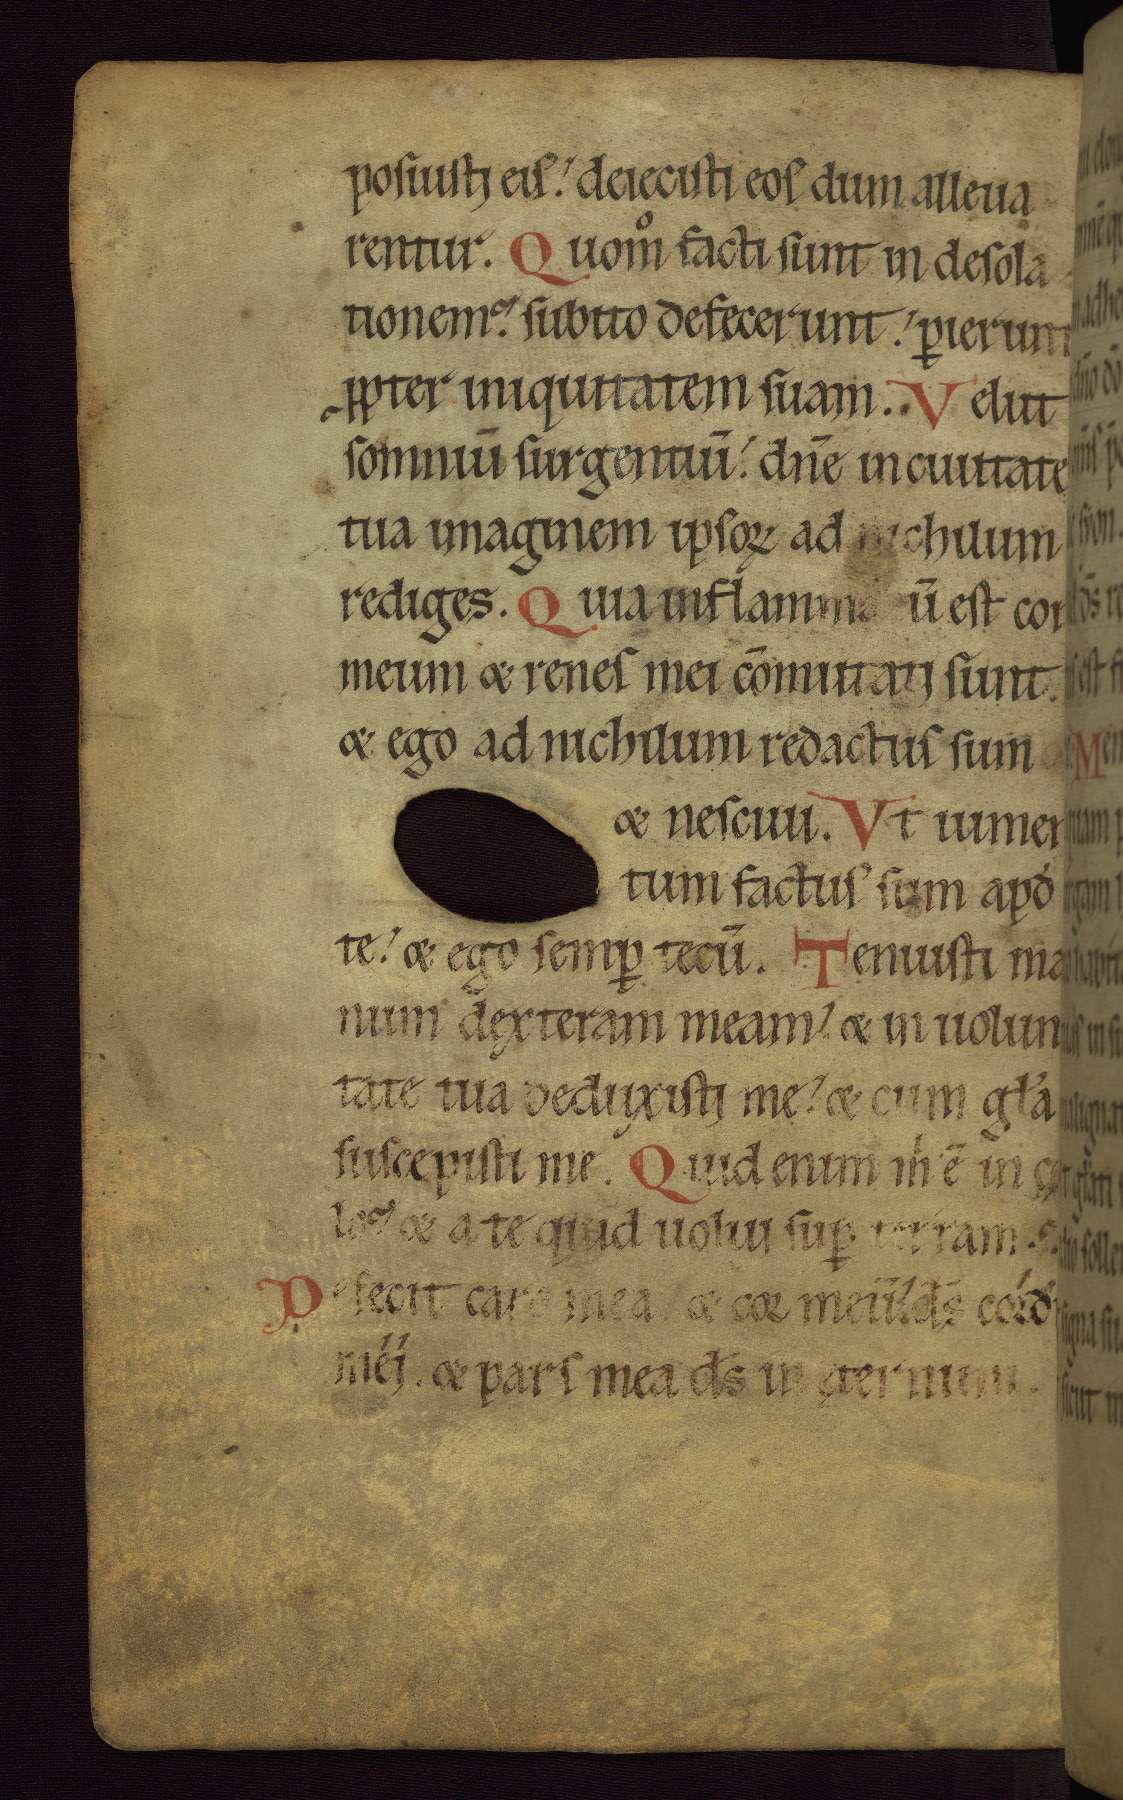 posuistj eis! deiecisti eos dum alleua
rentur. Quom̊ facti sunt in desola
tionem? subito defecerunt! ꝑierunt
ꝓpter iniquitatem suam. Velut
somniū surgentiū! dñe in ciuitate
tua imaginem ipsoꝝ ad nichilum
rediges. Quia inflammatū est cor
meum & renes mei cōmutatj sunt.
& ego ad nichilum redactus sum
& nesciui. Vt iumen
tum factus sum apd́
te! & ego semꝑ tecū. Tenuisti ma
num dexteram meam! & in uolun
tate tua deduxistj me! & cum gl̃a
suscepisti me. Quid enim m̊ ē in cę
lo? & a te quid uoluj suꝑ terram.
Defecit caro mea & cor meū! d̄s cord̓
méj. & pars mea d̄s in ęternum.